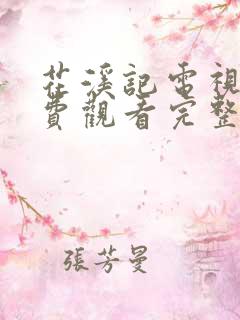 茌溪記電視
費觀看完整
張芳曼